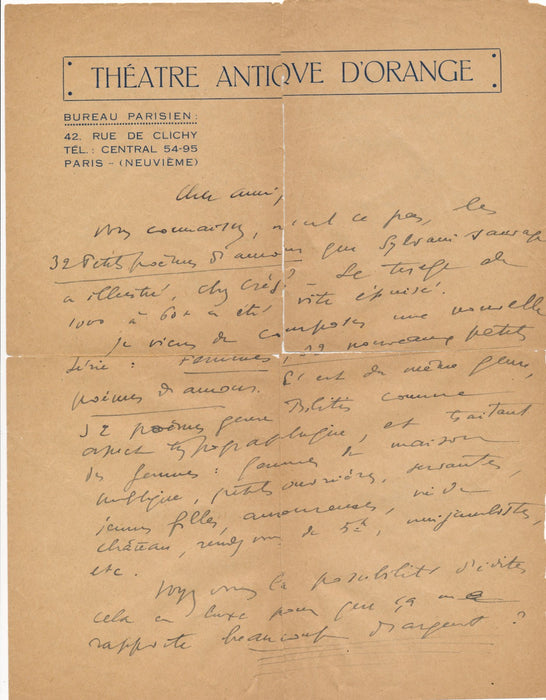 THÉATRE ANTIQVE D'ORANGE
BUREAU PARISIEN :
42. RUE DE CLICHY
TÉL. : CENTRAL 54-95
PARIS - (NEUVIÈME)
Cher ami,
Vous connaissez, n'est ce pas, les
32 Petits poèmes d'amour que Sylvain Sauvage
a illustré, chez Crès ? Le tirage de
1000 à 60 a été vite épuisé.
Je viens de composer une nouvelle
série : Femmes, 32 nouveaux petits
poèmes d'amour. C'est du même genre,
32 poèmes genre comme
aspect typographique, et traitant
des femmes : femmes de maison
publique, petites ouvrières, servantes,
jeunes filles, amoureuses, vie de
château, rendez vous de 5h,
etc.
Voyez vous la possibilité d'éditer
cela en luxe pour que ça me
rapporte beaucoup d'argent ?